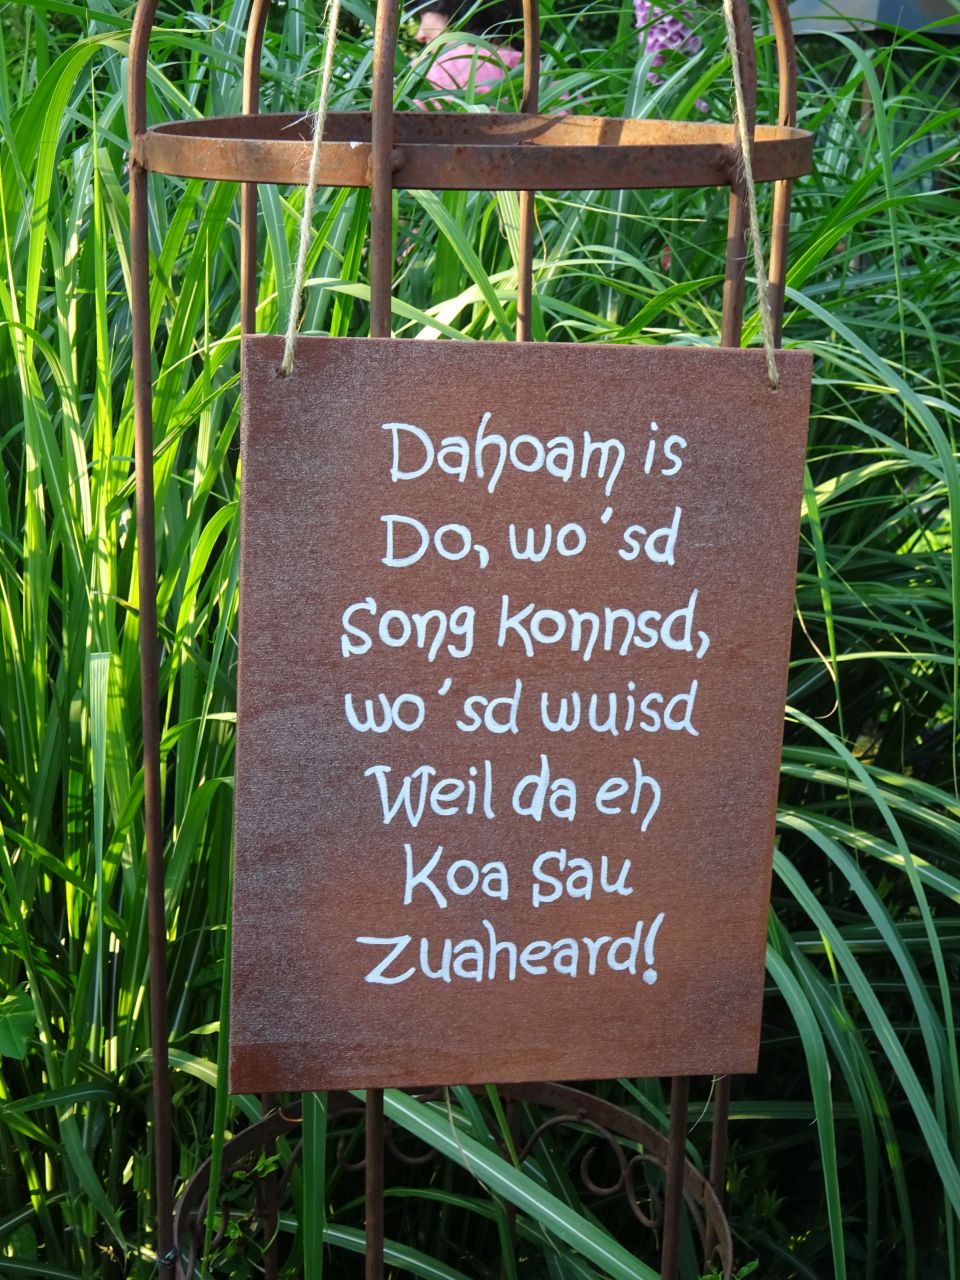 Dahoam is
Do, wo´sd
Song konnsd,
wo´sd wuisd
Weil da eh
Koa Sau
Zuaheard!